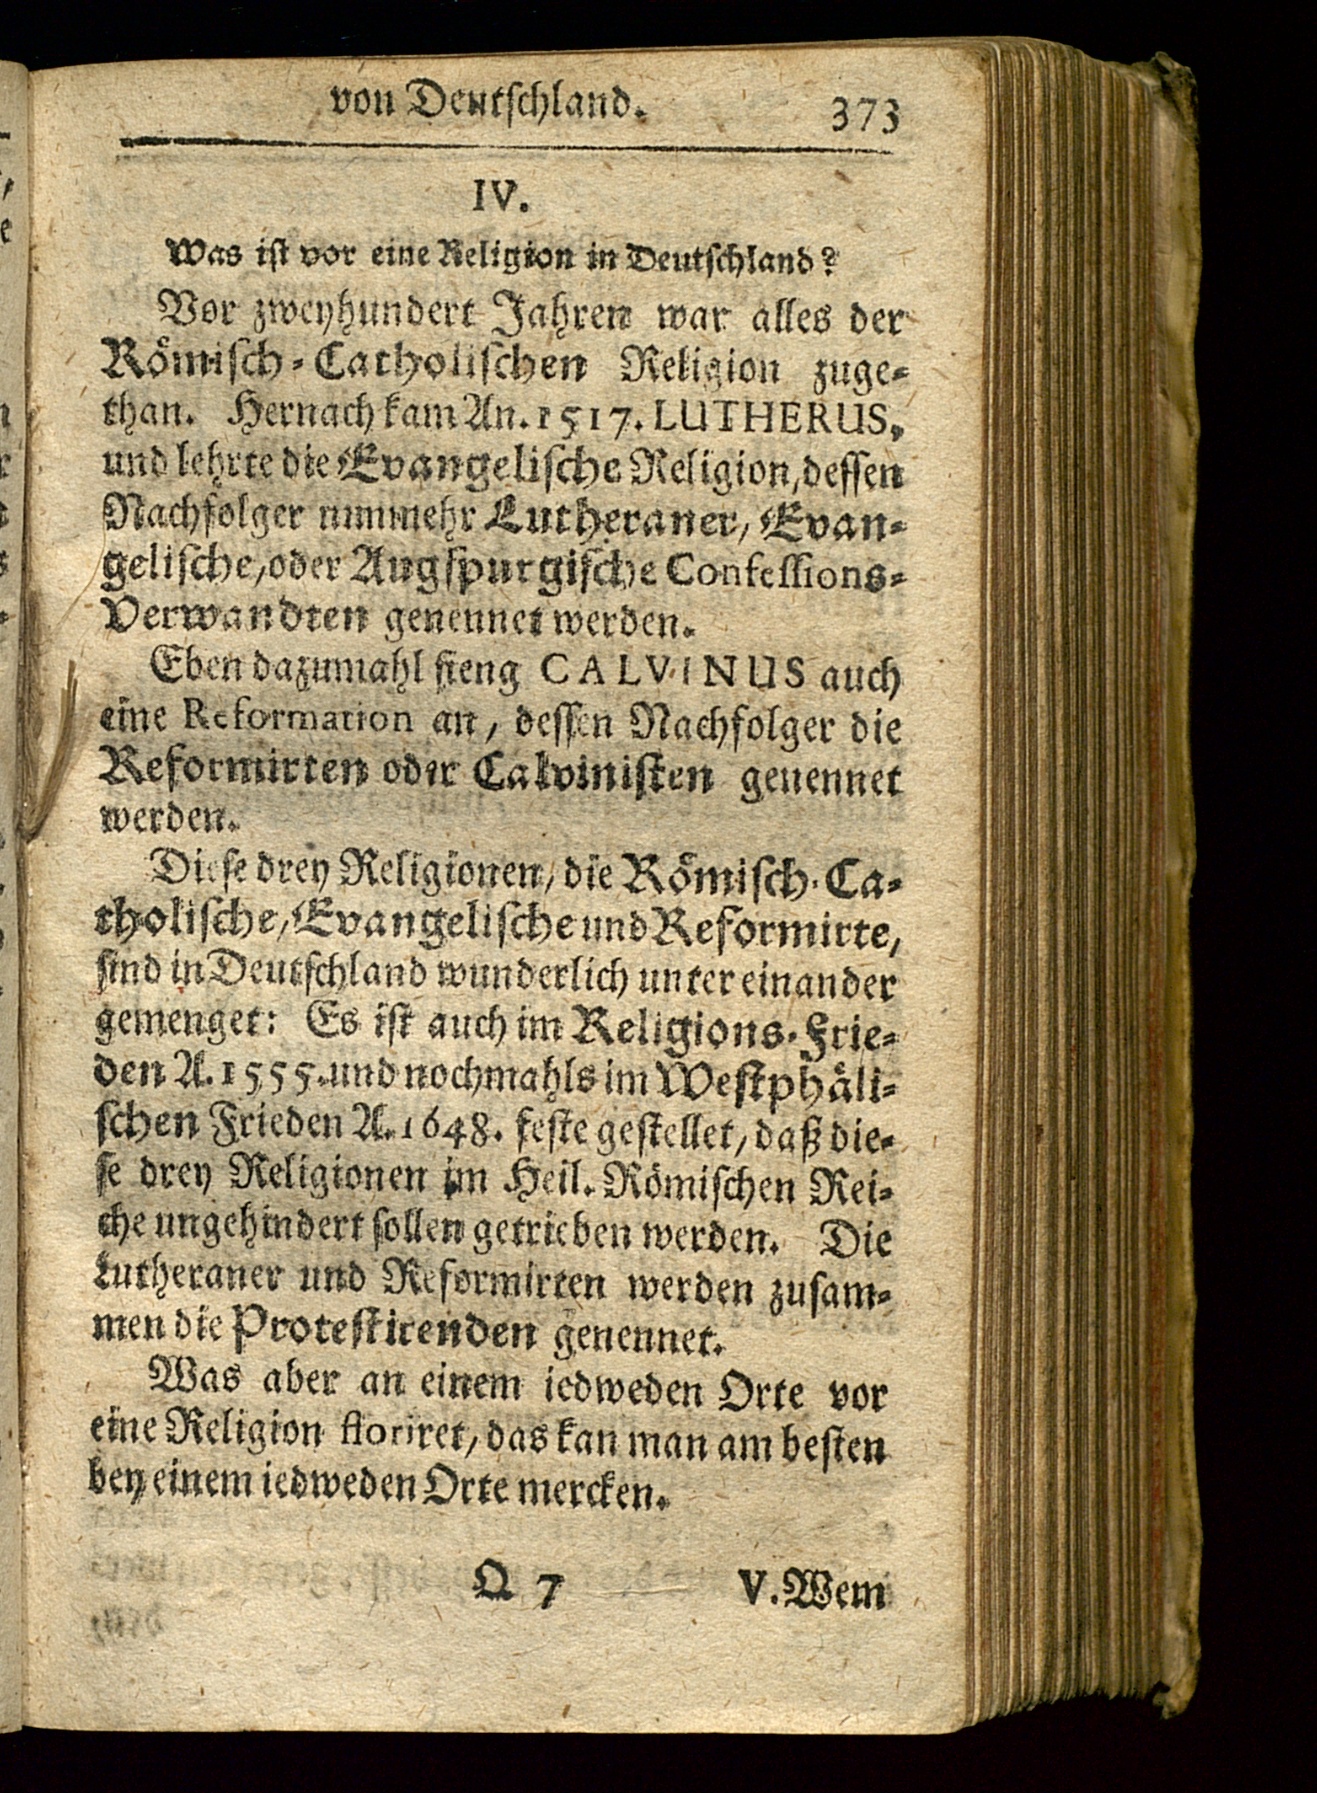 von Deutschland. 373
IV.
Was ist vor eine Religion in Deutschland?
Vor zweyhundert Jahren war alles der
Römisch-Catholischen Religion zuge-
than. Hernach kam An. 1517. LUTHERUS,
und lehrte die Evangelische Religion, dessen
Nachfolger nunmehr Lutheraner, Evan-
gelische, oder Augspurgische Confessions-
Verwandten genennet werden.
Eben dazumahl fieng CALVINUS auch
eine Reformation an, dessen Nachfolger die
Reformirten oder Calvinisten genennet
werden.
Diese drey Religionen, die Römisch-Ca-
tholische, Evangelische und Reformirte,
sind in Deutschland wunderlich unter einander
gemenget: Es ist auch im Religions-Frie-
den A. 1555. und nochmahls im Westphäli-
schen Frieden A. 1648. feste gestellet, daß die-
se drey Religionen im Heil. Römischen Rei-
che ungehindert sollen getrieben werden. Die
Lutheraner und Reformirten werden zusam-
men die Protestirenden genennet.
Was aber an einem iedweden Orte vor
eine Religion floriret, das kan man am besten
bey einem iedweden Orte mercken.
Q 7 V. Wem